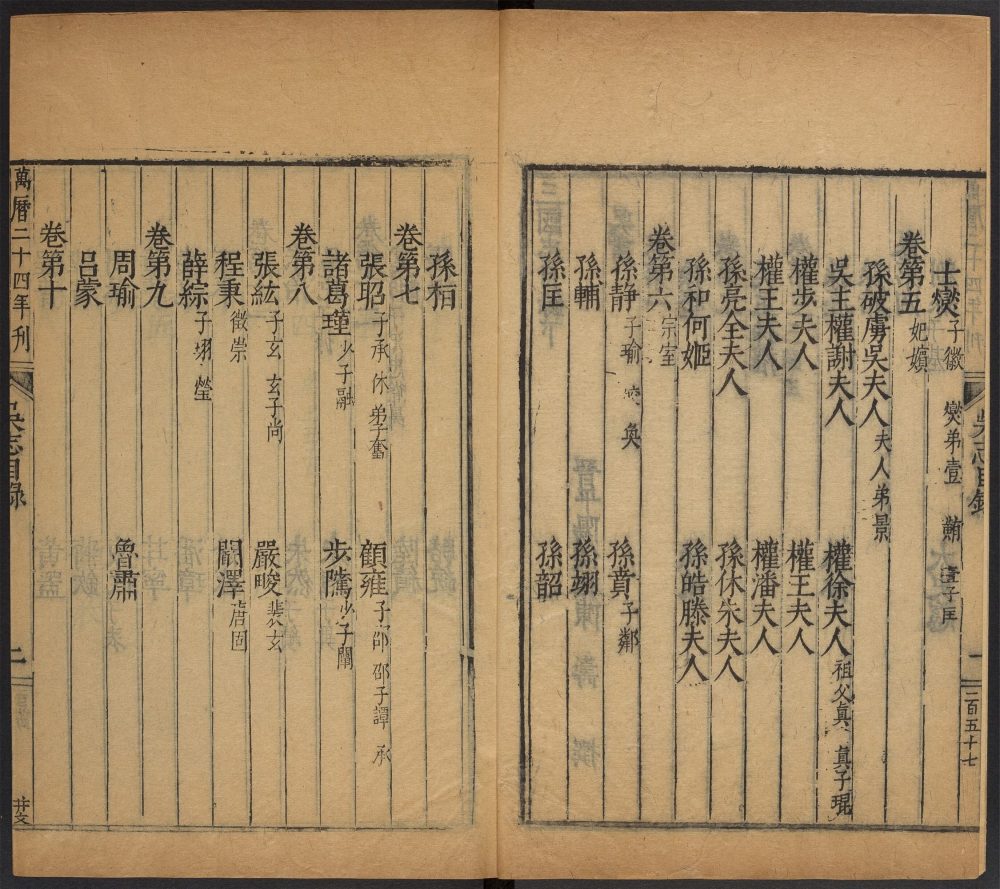 士燮 子徽 燮弟壹 䵋 壹子匡
卷第五 妃嬪
孫破虜吳夫人 夫人弟景
吳王權謝夫人 權徐夫人 祖父真 真子琨
權步夫人 權王夫人
權王夫人 權潘夫人
孫亮全夫人 孫休朱夫人
孫和何姬 孫皓滕夫人
卷第六 宗室
孫靜 子瑜 皎 奐 孫賁 子鄰
孫輔 孫翊
孫匡 孫韶
吳志目錄
一
二百五十七
孫桓
卷第七
張昭 子承 休 弟子奮 顧雍 子邵 邵子譚 承
諸葛瑾 少子融 步騭 少子闡
卷第八
張紘 子玄 玄子尚 嚴畯 裴玄
程秉 徵崇 闞澤 唐固
薛綜 子珝 瑩
卷第九
周瑜 魯肅
呂蒙
卷第十
萬曆二十四年刊
吳志目錄
二